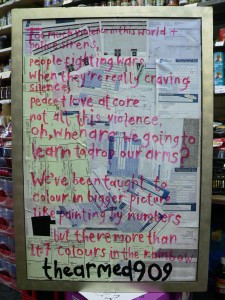 Too much violence in this world +
bombs sirens,
people fighting wars
when they're really craving
silence,
peace + love at core
not all this violence,
oh, when are we going to
learn to drop our arms?
We've been taught to
colour in bigger picture
like painting by numbers
but there more than
7 colours in the rainbow
thearmed909